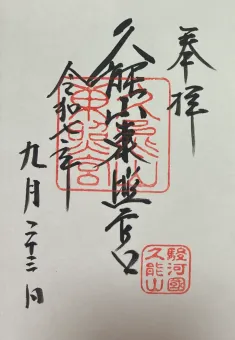 奉拝
久能山東照宮
令和七年
九月二十三日
久能山
東照宮
駿河國
久能山